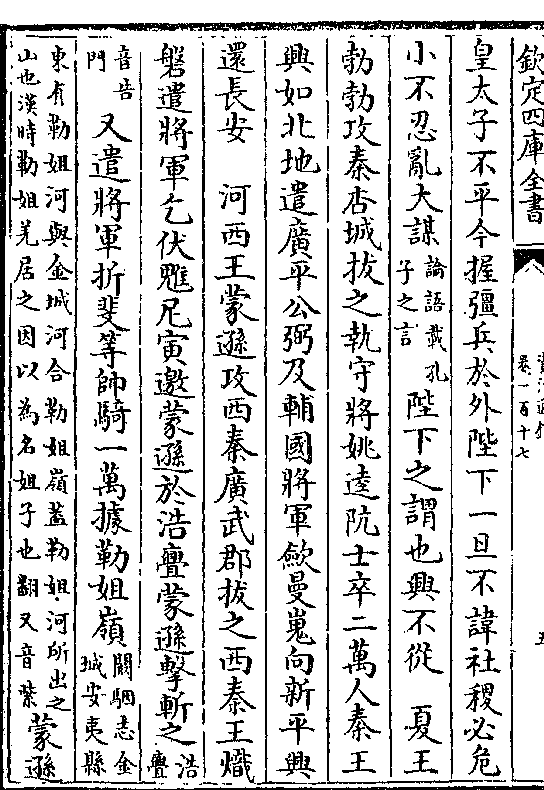 欽定四庫全書
卷一百十七
五
皇太子不平今握彊兵於外陛下一旦不諱社稷必危
小不忍亂大謀論語載孔子之言陛下之謂也興不從　夏王
勃勃攻秦杏城拔之執守將姚逵阬士卒二萬人秦王
興如北地遣廣平公弼及輔國將軍歛曼嵬向新平興
還長安　河西王蒙遜攻西秦廣武郡拔之西秦王熾
磐遣將軍乞伏魋尼寅邀蒙遜於浩亹蒙遜擊斬之浩亹
音告門又遣將軍折斐等帥騎一萬據勒姐嶺闞駰志金城安夷縣
東有勒姐河與金城河合勒姐嶺蓋勒姐河所出之山也漢時勒姐羌居之因以為名姐子也翻又音紫蒙遜